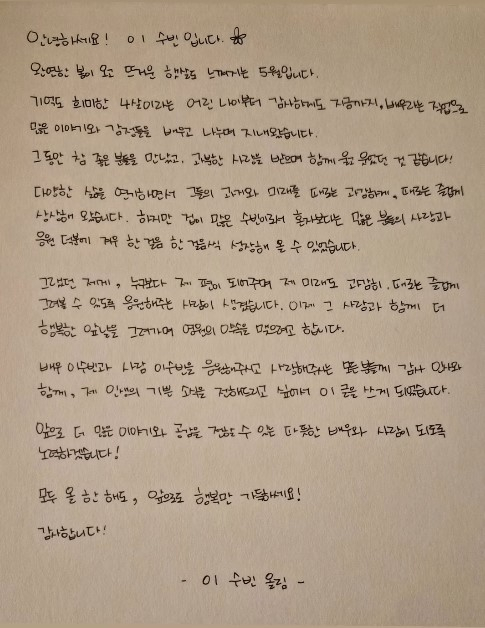 안녕하세요! 이 수빈 입니다.
완연한 봄이 오고 뜨거운 햇살도 느껴지는 5월입니다.
기억도 희미한 4살이라는 어린 나이부터 감사하게도 지금까지, 배우라는 직업으로
많은 이야기와 감정들을 배우고 나누며 지내왔습니다.
그동안 참 좋은 분들을 만났고, 과분한 사랑을 받으며 함께 웃고 울었던 것 같습니다!
다양한 삶을 연기하면서 그들의 과거와 미래를 때로는 과감하게, 때로는 즐겁게
상상해 왔습니다. 하지만 겁이 많은 수빈이라서 혼자보다는 많은 분들의 사랑과
응원 덕분에 겨우 한 걸음 한 걸음씩 성장해 올 수 있었습니다.
그랬던 제게, 누구보다 제 편이 되어주며 제 미래도 과감히, 때로는 즐겁게
그려볼 수 있도록 응원해주는 사람이 생겼습니다. 이제 그 사람과 함께 더
행복한 앞날을 그려가며 영원의 약속을 맺으려고 합니다.
배우 이수빈과 사람 이수빈을 응원해주시고 사랑해주시는 모든 분들께 감사 인사와
함께, 제 인생의 기쁜 소식을 전해드리고 싶어서 이 글을 쓰게 되었습니다.
앞으로 더 많은 이야기와 공감을 전할 수 있는 따뜻한 배우와 사람이 되도록
노력하겠습니다!
모두 올 한 해도, 앞으로도 행복만 가득하세요!
감사합니다!
- 이 수빈 올림 -